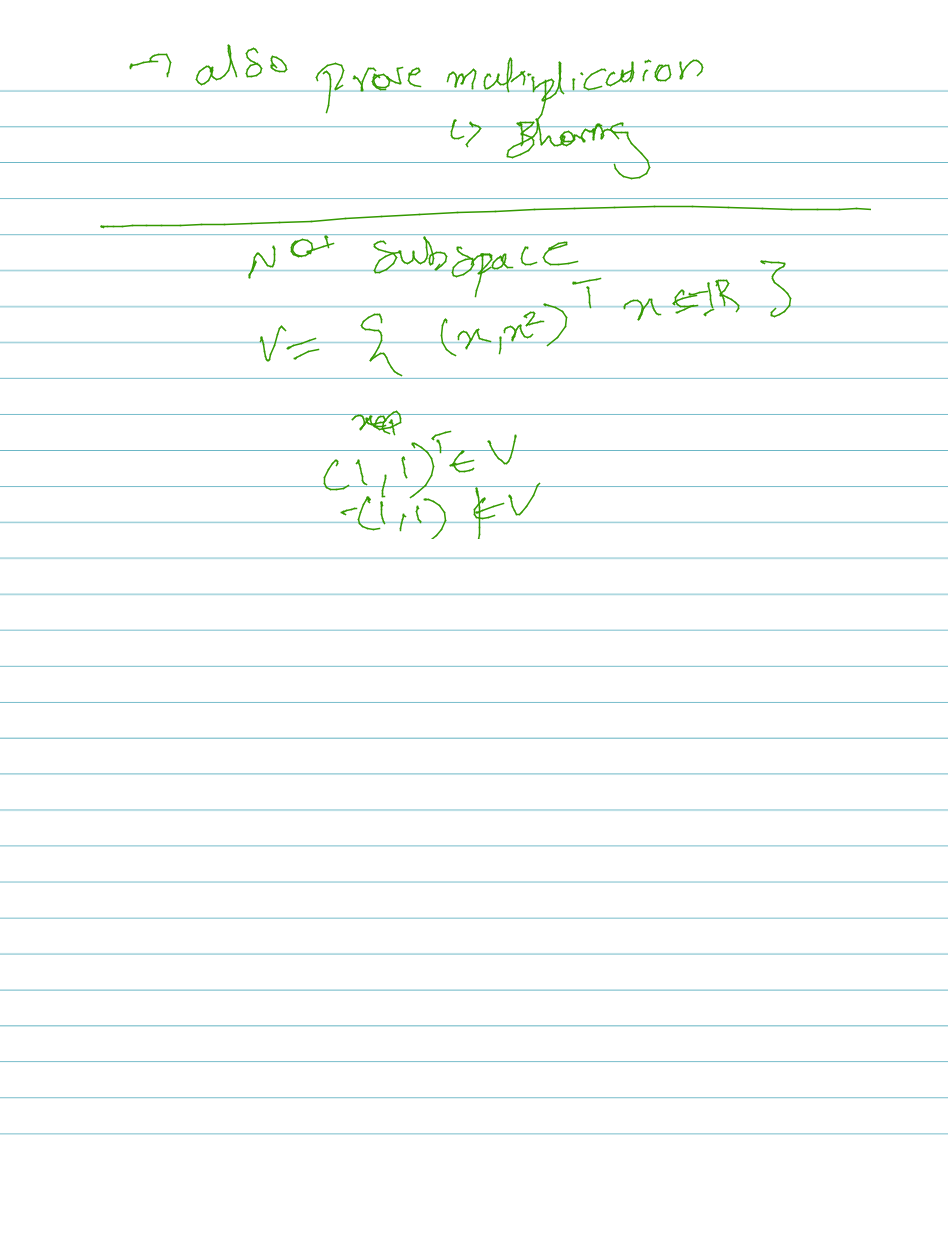 → also prove multiplication
↳
Not subspace
V = { (x, x²)ᵀ x ∈ ℝ }
(1, 1)ᵀ ∈ V
-(1, 1) ∉ V